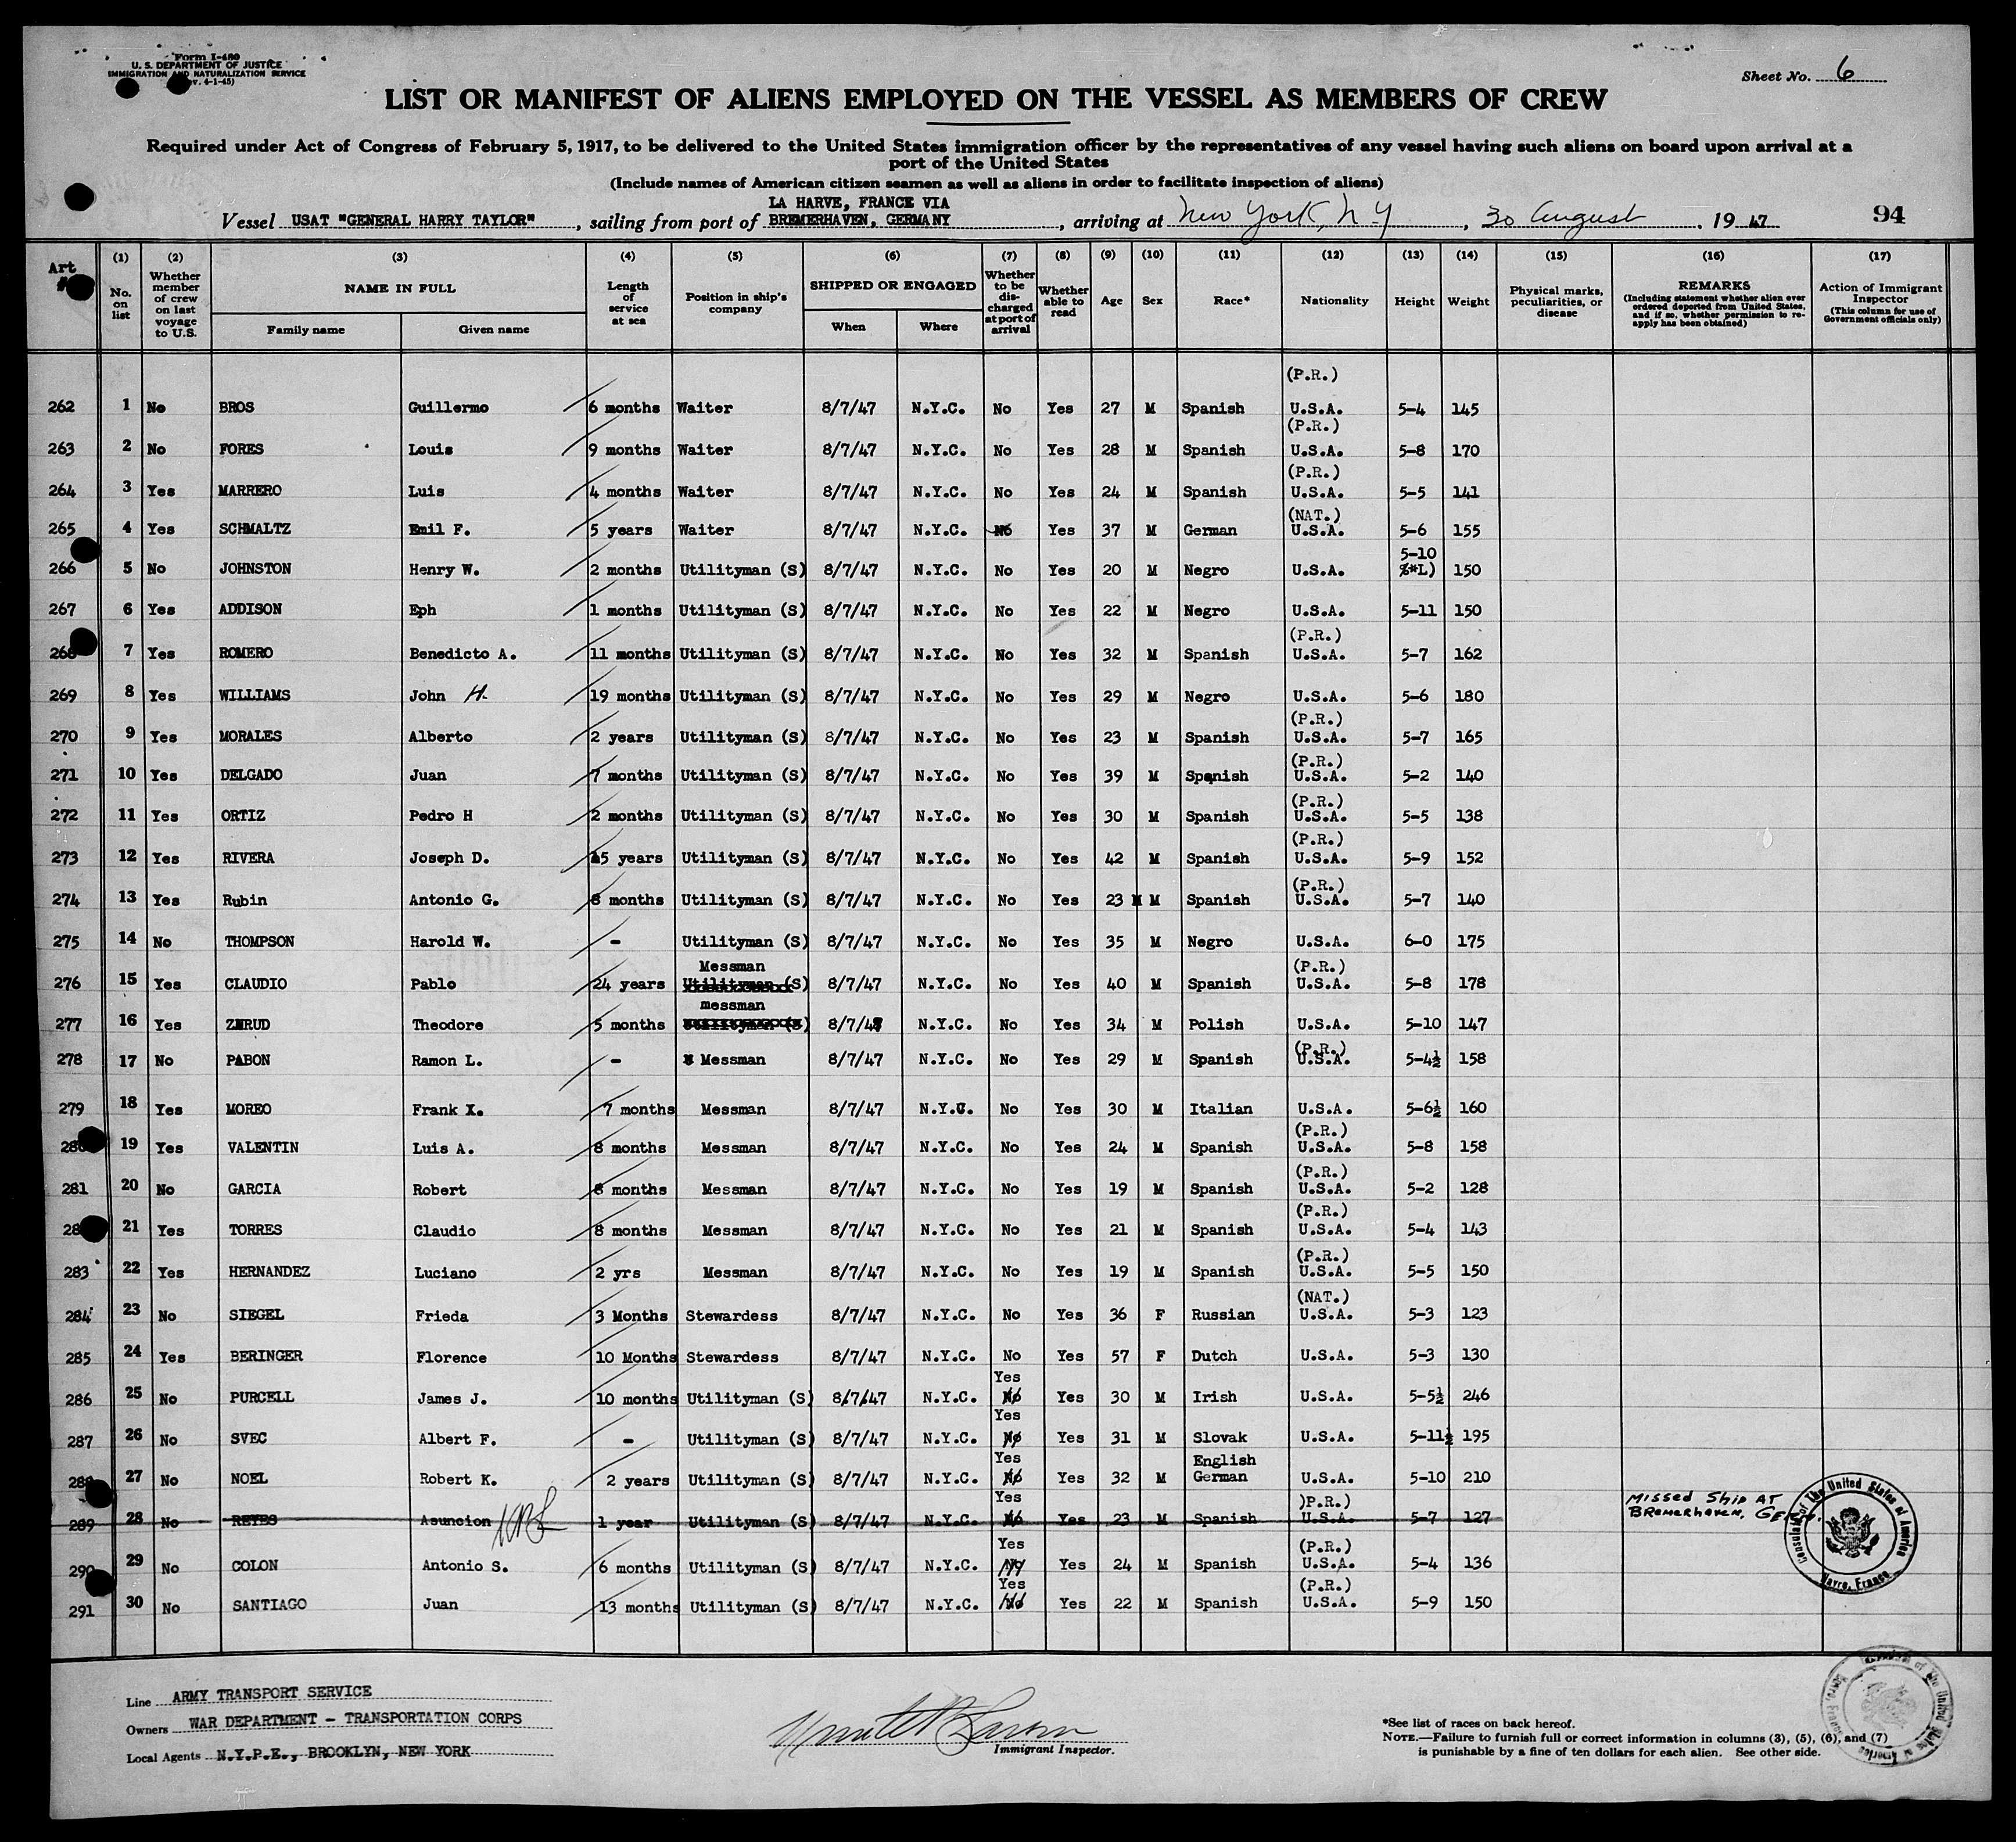 Form I-480
U. S. DEPARTMENT OF JUSTICE
IMMIGRATION AND NATURALIZATION SERVICE
(Rev. 4-1-45)
Sheet No. 6
LIST OR MANIFEST OF ALIENS EMPLOYED ON THE VESSEL AS MEMBERS OF CREW
Required under Act of Congress of February 5, 1917, to be delivered to the United States immigration officer by the representatives of any vessel having such aliens on board upon arrival at a
port of the United States
(Include names of American citizen seamen as well as aliens in order to facilitate inspection of aliens)
LA HARVE, FRANCE VIA
Vessel USAT "GENERAL HARRY TAYLOR", sailing from port of BREMERHAVEN, GERMANY, arriving at New York, N.Y, 30 August, 1947 94
Art # (1) No. on list (2) Whether member of crew on last voyage to U.S. (3) NAME IN FULL Family name Given name (4) Length of service at sea (5) Position in ship's company (6) SHIPPED OR ENGAGED When Where (7) Whether to be discharged at port of arrival (8) Whether able to read (9) Age (10) Sex (11) Race* (12) Nationality (13) Height (14) Weight (15) Physical marks, peculiarities, or disease (16) REMARKS (Including statement whether alien ever ordered deported from United States, and if so, whether permission to re-apply has been obtained) (17) Action of Immigrant Inspector (This column for use of Government officials only)
(P.R.)
262 1 No BROS Guillermo 6 months Waiter 8/7/47 N.Y.C. No Yes 27 M Spanish U.S.A. 5-4 145
(P.R.)
263 2 No FORES Louis 9 months Waiter 8/7/47 N.Y.C. No Yes 28 M Spanish U.S.A. 5-8 170
(P.R.)
264 3 Yes MARRERO Luis 4 months Waiter 8/7/47 N.Y.C. No Yes 24 M Spanish U.S.A. 5-5 141
(NAT.)
265 4 Yes SCHMALTZ Emil F. 5 years Waiter 8/7/47 N.Y.C. No Yes 37 M German U.S.A. 5-6 155
5-10
266 5 No JOHNSTON Henry W. 2 months Utilityman (S) 8/7/47 N.Y.C. No Yes 20 M Negro U.S.A. 150
267 6 Yes ADDISON Eph 1 months Utilityman (S) 8/7/47 N.Y.C. No Yes 22 M Negro U.S.A. 5-11 150
(P.R.)
268 7 Yes ROMERO Benedicto A. 11 months Utilityman (S) 8/7/47 N.Y.C. No Yes 32 M Spanish U.S.A. 5-7 162
269 8 Yes WILLIAMS John H. 19 months Utilityman (S) 8/7/47 N.Y.C. No Yes 29 M Negro U.S.A. 5-6 180
(P.R.)
270 9 Yes MORALES Alberto 2 years Utilityman (S) 8/7/47 N.Y.C. No Yes 23 M Spanish U.S.A. 5-7 165
(P.R.)
271 10 Yes DELGADO Juan 7 months Utilityman (S) 8/7/47 N.Y.C. No Yes 39 M Spanish U.S.A. 5-2 140
(P.R.)
272 11 Yes ORTIZ Pedro H 2 months Utilityman (S) 8/7/47 N.Y.C. No Yes 30 M Spanish U.S.A. 5-5 138
(P.R.)
273 12 Yes RIVERA Joseph D. 15 years Utilityman (S) 8/7/47 N.Y.C. No Yes 42 M Spanish U.S.A. 5-9 152
(P.R.)
274 13 Yes Rubin Antonio G. 8 months Utilityman (S) 8/7/47 N.Y.C. No Yes 23 M Spanish U.S.A. 5-7 140
275 14 No THOMPSON Harold W. - Utilityman (S) 8/7/47 N.Y.C. No Yes 35 M Negro U.S.A. 6-0 175
Messman (P.R.)
276 15 Yes CLAUDIO Pablo 24 years Utilityman (S) 8/7/47 N.Y.C. No Yes 40 M Spanish U.S.A. 5-8 178
messman
277 16 Yes ZMRUD Theodore 5 months Utilityman (S) 8/7/47 N.Y.C. No Yes 34 M Polish U.S.A. 5-10 147
(P.R.)
278 17 No PABON Ramon L. - Messman 8/7/47 N.Y.C. No Yes 29 M Spanish U.S.A. 5-4½ 158
279 18 Yes MOREO Frank X. 7 months Messman 8/7/47 N.Y.C. No Yes 30 M Italian U.S.A. 5-6½ 160
(P.R.)
280 19 Yes VALENTIN Luis A. 8 months Messman 8/7/47 N.Y.C. No Yes 24 M Spanish U.S.A. 5-8 158
(P.R.)
281 20 No GARCIA Robert 8 months Messman 8/7/47 N.Y.C. No Yes 19 M Spanish U.S.A. 5-2 128
(P.R.)
28 21 Yes TORRES Claudio 8 months Messman 8/7/47 N.Y.C. No Yes 21 M Spanish U.S.A. 5-4 143
(P.R.)
283 22 Yes HERNANDEZ Luciano 2 yrs Messman 8/7/47 N.Y.C. No Yes 19 M Spanish U.S.A. 5-5 150
(NAT.)
284 23 No SIEGEL Frieda 3 Months Stewardess 8/7/47 N.Y.C. No Yes 36 F Russian U.S.A. 5-3 123
285 24 Yes BERINGER Florence 10 Months Stewardess 8/7/47 N.Y.C. No Yes 57 F Dutch U.S.A. 5-3 130
Yes
286 25 No PURCELL James J. 10 months Utilityman (S) 8/7/47 N.Y.C. No Yes 30 M Irish U.S.A. 5-5½ 246
Yes
287 26 No SVEC Albert F. - Utilityman (S) 8/7/47 N.Y.C. No Yes 31 M Slovak U.S.A. 5-11½ 195
Yes English
288 27 No NOEL Robert K. 2 years Utilityman (S) 8/7/47 N.Y.C. No Yes 32 M German U.S.A. 5-10 210
Yes )P.R.) Missed Ship AT
289 28 No REYES Asuncion 1 year Utilityman (S) 8/7/47 N.Y.C. No Yes 23 M Spanish U.S.A. 5-7 127 Bremerhaven, Ger.
Yes (P.R.)
290 29 No COLON Antonio S. 6 months Utilityman (S) 8/7/47 N.Y.C. No Yes 24 M Spanish U.S.A. 5-4 136
Yes (P.R.)
291 30 No SANTIAGO Juan 13 months Utilityman (S) 8/7/47 N.Y.C. No Yes 22 M Spanish U.S.A. 5-9 150
Consulate of The United States of America
Havre, France
Line ARMY TRANSPORT SERVICE
Owners WAR DEPARTMENT - TRANSPORTATION CORPS
Local Agents N.Y.P.E., BROOKLYN, NEW YORK
Immigrant Inspector.
*See list of races on back hereof.
NOTE.—Failure to furnish full or correct information in columns (3), (5), (6), and (7)
is punishable by a fine of ten dollars for each alien. See other side.